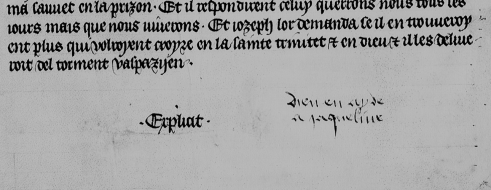 ma sauuet en la prizon. Et il respondirent celuy querrons nous tous les
iours mais que nous uiuerons. Et iozeph lor demanda se il en trouueroy
ent plus qui volroyent croyre en la sainte trinitet & en dieu & il les deliue
roit del torment vaspazijen.
·Explicit·
Dieu en ayde
a jaqueline